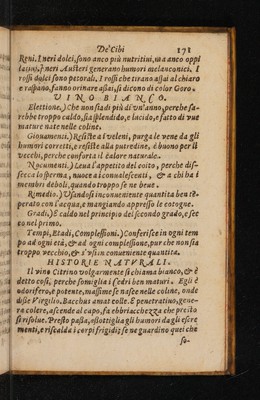 De'Cibi 171
Reni. I neri dolci, sono anco più nutritiui, ma anco oppi
latiui, i neri Austeri generano humori melanconici. I
rossi dolci sono petorali. I rossi che tirano assai al chiaro
e raspano, fanno orinare assai, si dicono di color Goro.
VINO BIANCO.
Elettione.) Che non sia di più di vn'anno, perche sa-
rebbe troppo caldo, sia splendido, e lucido, e fatto di vue
mature nate nelle coline.
Giouamenti.) Resiste a i veleni, purga le vene da gli
humori corretti, e resiste alla putredine, è buono per il
vecchi, perche conforta il calore naturale.
Nocumenti.) Leua l'appetito del coito, perche dis-
secca lo sperma, nuoce a i conualescenti, & a chi ha i
membri deboli, quando troppo se ne beue.
Rimedio.) Vsandosi inconueniente quantita ben tē-
perato con l'acqua, e mangiando appresso le cotogne.
Gradi.) È caldo nel principio del secondo grado, e sec
co nel primo.
Tempi, Etadi, Complessioni.) Conferisce in ogni tem
po ad ogni età, & ad ogni complessione, pur che non sia
troppo vecchio, & s'vsi in conueniente quantita.
HISTORIE NATVRALI.
Il vino Citrino volgarmente si chiama bianco, & è
detto così, perche somiglia i cedri ben maturi. Egli è
odorifero, e potente, massime se nasce nelle coline, onde
disse Virgilio. Bacchus amat colle. E penetratiuo, gene-
ra colere, ascende al capo, fa ebbriacchezza che presto
si risolue. Presto passa, assottiglia gli humori da gli escre
menti, e riscalda i corpi frigidi; se ne guardino quei che
so-